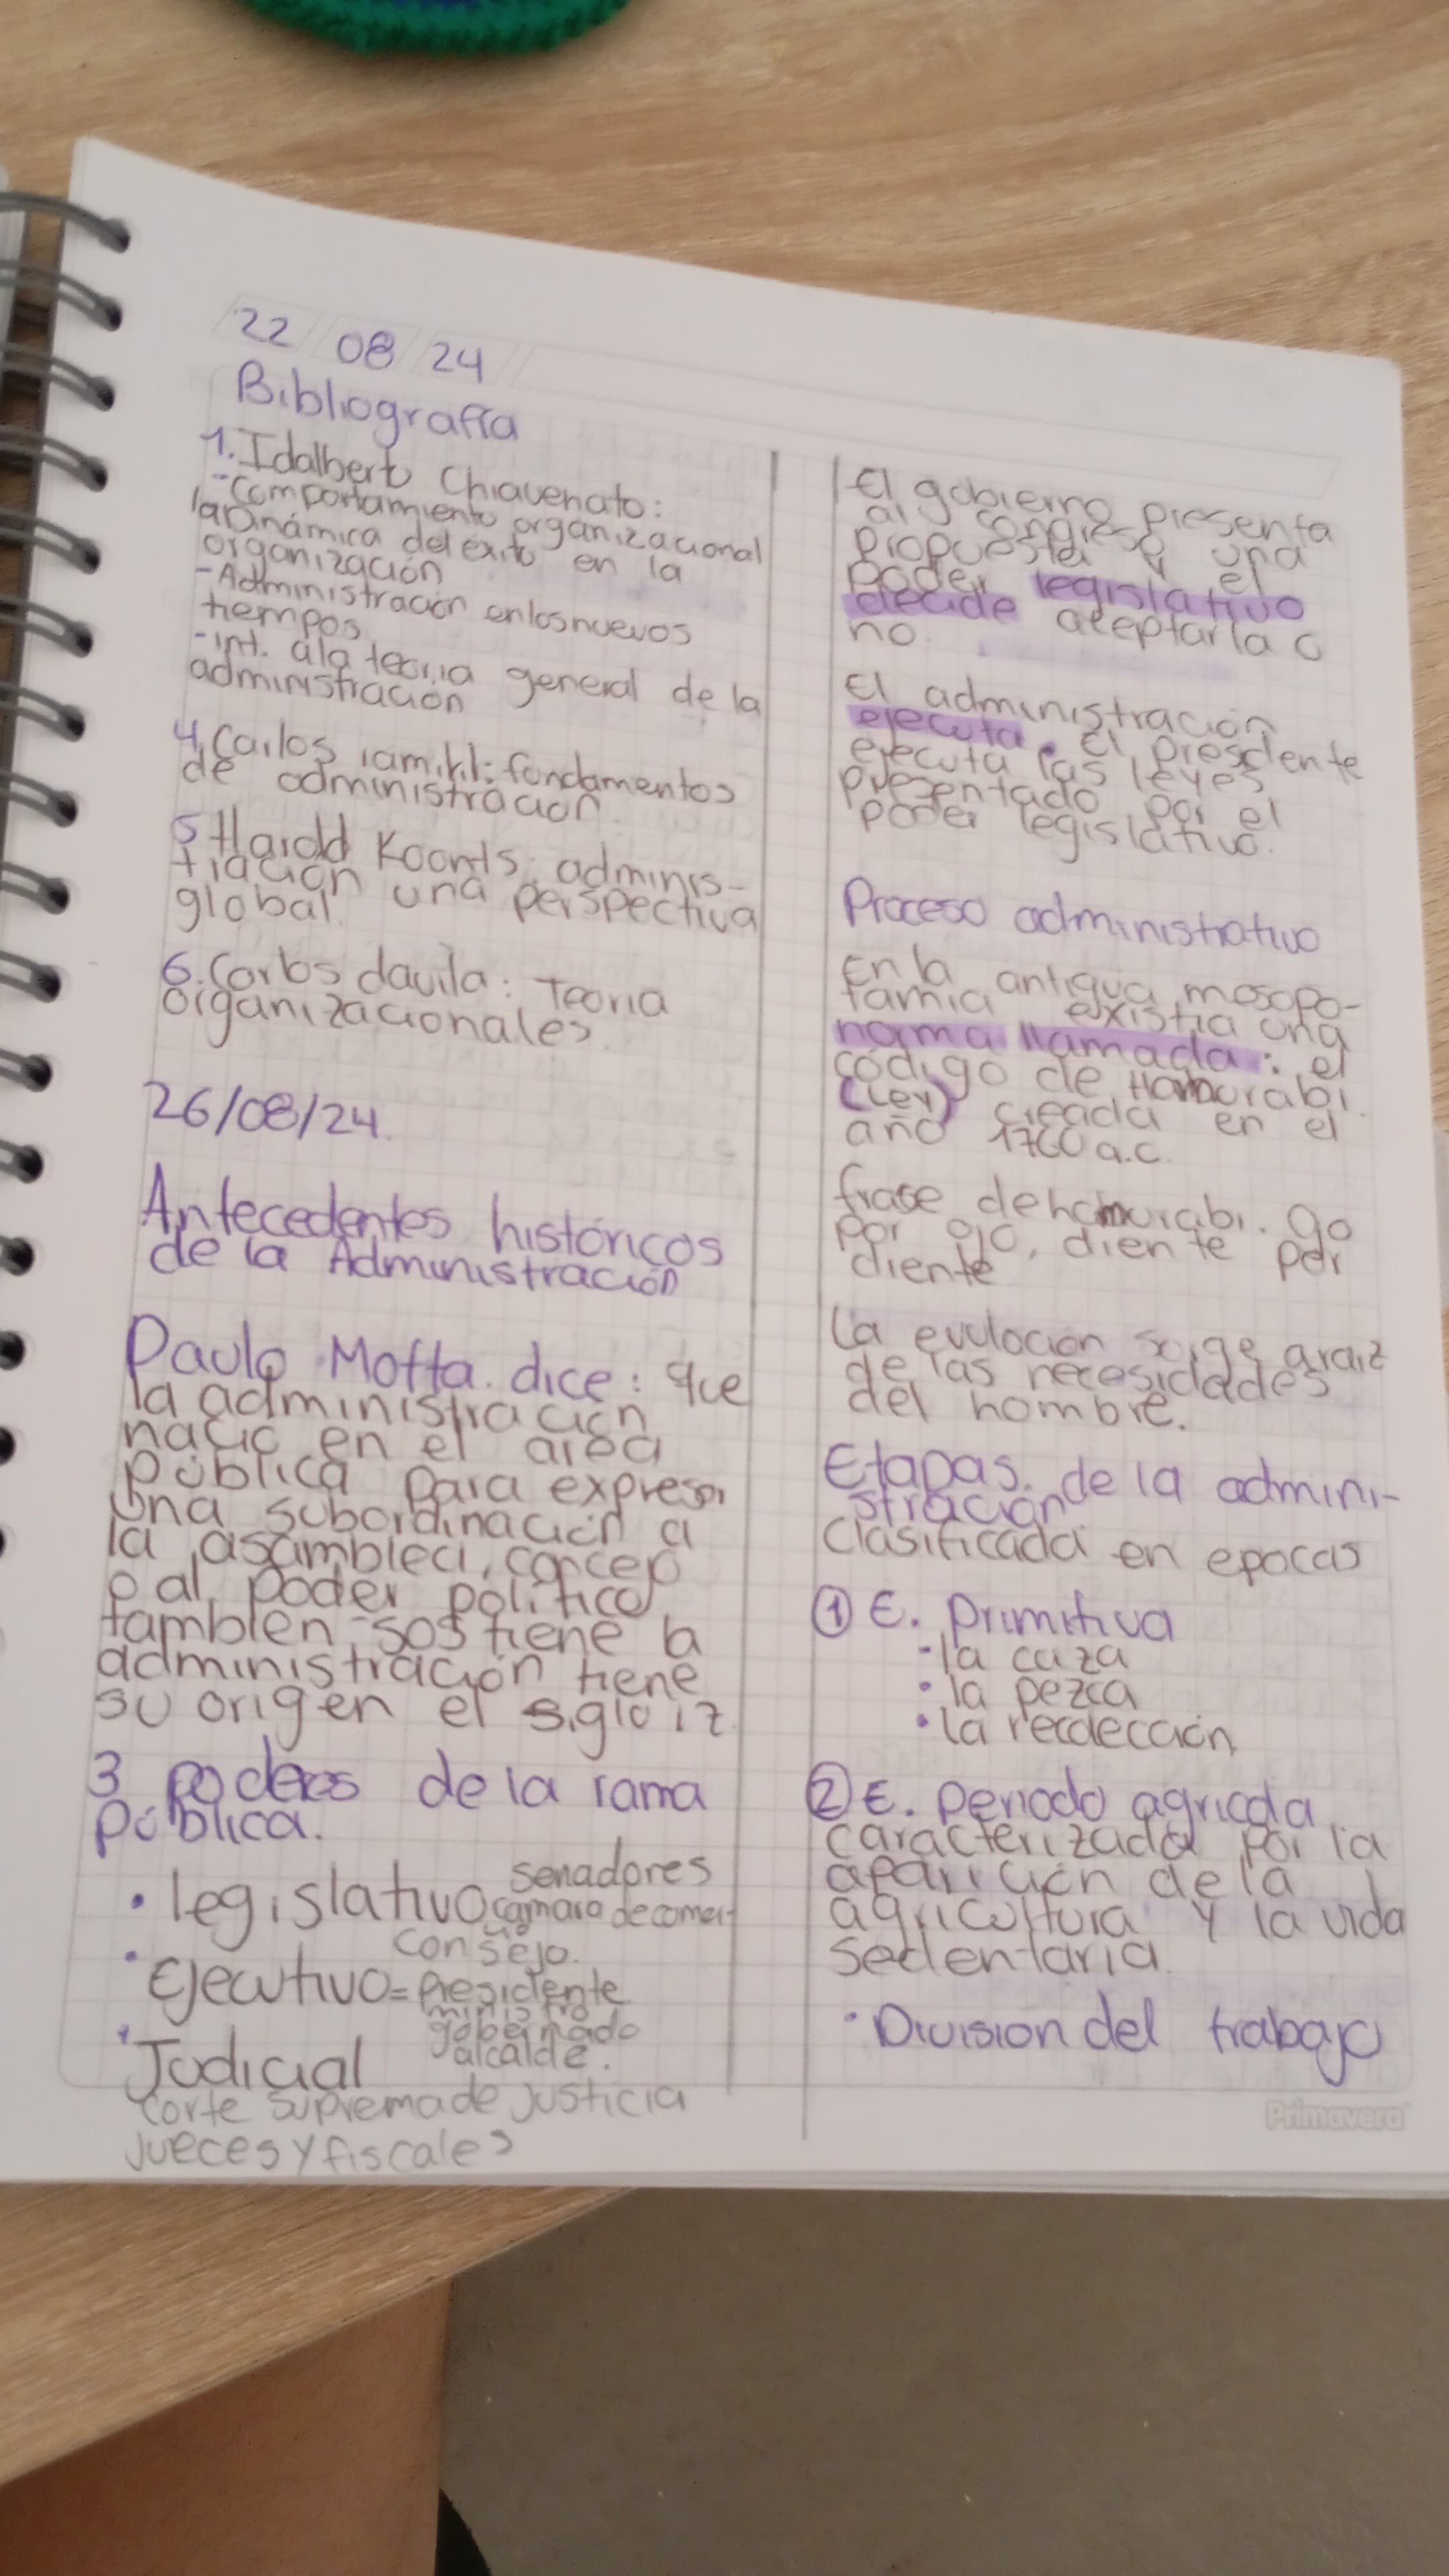 22 08 24
Bibliografía
1. Idalberto Chiavenato:
- Comportamiento organizacional
la Dinámica del exito en la
organización
- Administración enlosnuevos
tiempos
- int. ala teoria general de la
administración
4. Carlos ramirl: fundamentos
de administracion
5 Harold Koonts: adminis-
tración una perspectiva
global.
6. Carlos davila: Teoria
organizacionales.
26/08/24.
Antecedentes históricos
de la Administración
Paulo Motta. dice: que
la administración
nació en el area
pública para expresar
una subordinación a
la asamblea, concep
o al poder político
tambien sostiene la
administración tiene
su origen el siglo
3 poderes de la rama
pública.
• legislativo senadores
camara de comer-
cio
consejo.
• Ejecutivo = Presidente
ministro
gobernado
alcalde.
• Judicial
corte suprema de justicia
jueces y fiscales
El gobierno presenta
al congreso una
propuesta y el
poder legislativo
decide aceptarla o
no.
El administración
ejecuta. el presidente
ejecuta las leyes
presentado por el
poder legislativo.
Proceso administrativo
En la antigua mosopo-
tamia existia una
norma llamada: el
código de Hamurabi
(Ley) creada en el
año 1760 a.c.
frase dehamurabi. Ojo
por ojo, diente por
diente
La evulocion surge araiz
de las necesidades
del hombre.
Etapas. de la admini-
stración
Clasificada en epocas
① E. Primitiva
• la caza
• la pezca
• la recolección
② E. Periodo agricola
caracterizada por la
aparición de la
agricultura y la vida
sedentaria
• Division del trabajo
Primavera